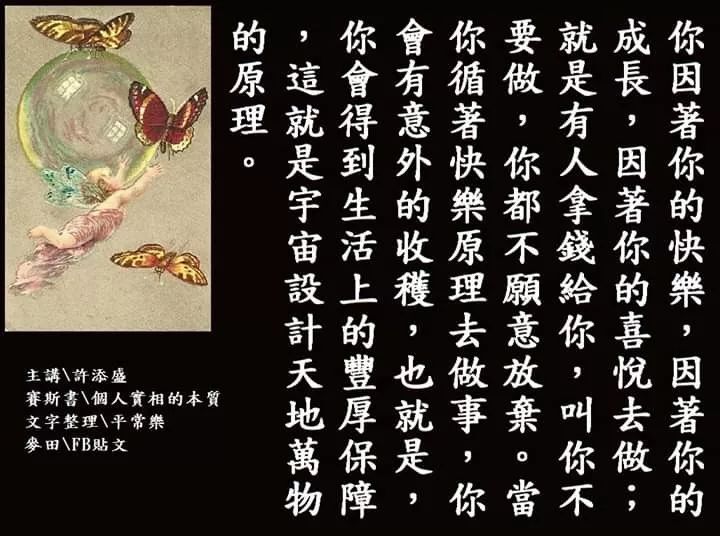 你因著你的快樂，因著你的
成長，因著你的喜悅去做；
就是有人拿錢給你，叫你不
要做，你都不願意放棄。當
你循著快樂原理去做事，你
會有意外的收穫，也就是，
你會得到生活上的豐厚保障
，這就是宇宙設計天地萬物
的原理。
主講\許添盛
賽斯書\個人實相的本質
文字整理\平常樂
麥田\FB貼文